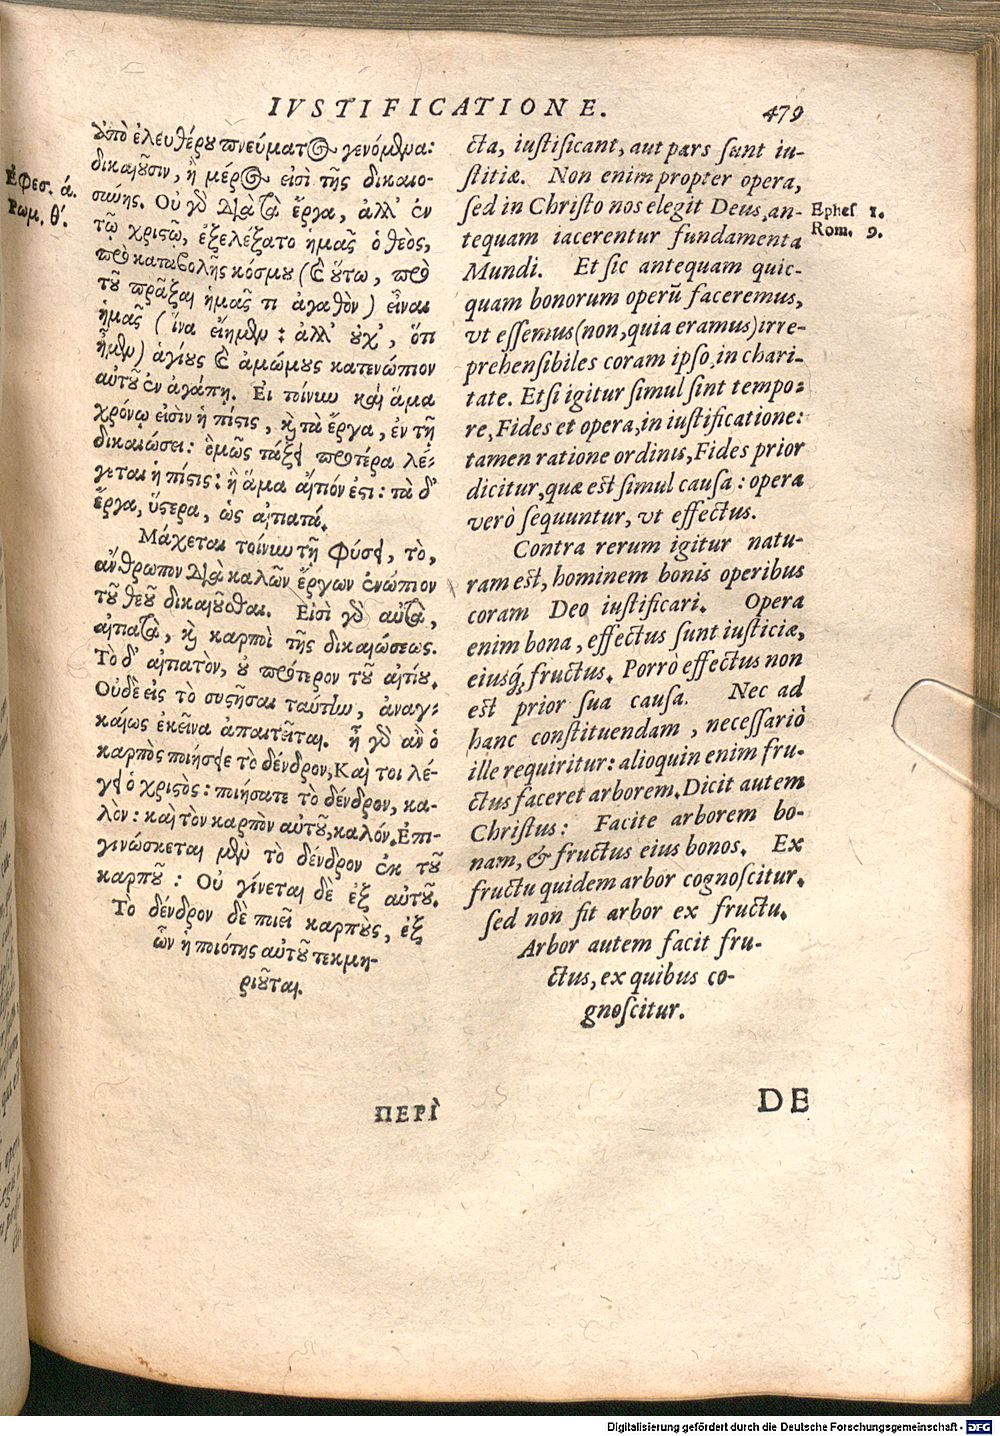 IVSTIFICATIONE. 479
ὑπὸ ἐλευθέρου πνεύματος γενόμενα:
δικαιοῦσιν, ἢ μέρος εἰσὶ τῆς δικαιο-
σύνης. Οὐ γὸ διὰ τὰ ἔργα, ἀλλ' ἐν
τῷ χριστῷ, ἐξελέξατο ἡμᾶς ὁ θεὸς,
πρὸ καταβολῆς κόσμου (καὶ οὕτω, πρὸ
τοῦ πρᾶξαι ἡμᾶς τι ἀγαθὸν) εἶναι
ἡμᾶς (ἵνα εἴημεν: ἀλλ' οὐχ', ὅτι
ἦμεν) ἁγίους καὶ ἀμώμους κατενώπιον
αὐτοῦ ἐν ἀγάπῃ. Ει τοίνυν καὶ ἅμα
χρόνῳ εἰσὶν ἡ πίστις, καὶ τὰ ἔργα, ἐν τῇ
δικαιώσει: ὅμως τάξει προτέρα λέ-
γεται ἡ πίστις: ἢ ἅμα αἴτιόν ἐστι: τὰ δ'
ἔργα, ὕστερα, ὡς αἰτιατά.
Μάχεται τοίνυν τῇ φύσει, τὸ,
ἄνθρωπον διὰ καλῶν ἔργων ἐνώπιον
τοῦ θεοῦ δικαιοῦσθαι. Εἰσὶ γὸ αὐτὰ,
αἰτιατὰ, καὶ καρποὶ τῆς δικαιώσεως.
Τὸ δ' αἰτιατὸν, οὐ πρότερον τοῦ αἰτίου.
Οὐδὲ εἰς τὸ συστῆσαι ταύτην, ἀναγ-
καίως ἐκεῖνα ἀπαιτεῖται. ἦ γὸ ἂν ὁ
καρπὸς ποιήσειε τὸ δένδρον, Καὶ τοι λέ-
γει ὁ χριστὸς: ποιήσατε τὸ δένδρον, κα-
λὸν: καὶ τὸν καρπὸν αὐτοῦ, καλόν. Ἐπι-
γινώσκεται μὲν τὸ δένδρον ἐκ τοῦ
καρποῦ: Οὐ γίνεται δὲ ἐξ αὐτοῦ.
Τὸ δένδρον δὲ ποιεῖ καρποὺς, ἐξ
ὧν ἡ ποιότης αὐτοῦ τεκμη-
ριοῦται.
Ἐφεσ. ά.
Ρωμ. θ'.
ΠΕΡὶ
cta, iustificant, aut pars sunt iu-
stitiæ. Non enim propter opera,
sed in Christo nos elegit Deus, an-
tequam iacerentur fundamenta
Mundi. Et sic antequam quic-
quam bonorum operũ faceremus,
vt essemus (non, quia eramus) irre-
prehensibiles coram ipso, in chari-
tate. Etsi igitur simul sint tempo-
re, Fides et opera, in iustificatione:
tamen ratione ordinis, Fides prior
dicitur, quæ est simul causa: opera
verò sequuntur, vt effectus.
Contra rerum igitur natu-
ram est, hominem bonis operibus
coram Deo iustificari. Opera
enim bona, effectus sunt iusticiæ,
eiusq́; fructus. Porrò effectus non
est prior sua causa. Nec ad
hanc constituendam, necessariò
ille requiritur: alioquin enim fru-
ctus faceret arborem. Dicit autem
Christus: Facite arborem bo-
nam, & fructus eius bonos. Ex
fructu quidem arbor cognoscitur.
sed non fit arbor ex fructu.
Arbor autem facit fru-
ctus, ex quibus co-
gnoscitur.
Ephes 1.
Rom. 9.
DE
Digitalisierung gefördert durch die Deutsche Forschungsgemeinschaft - DFG